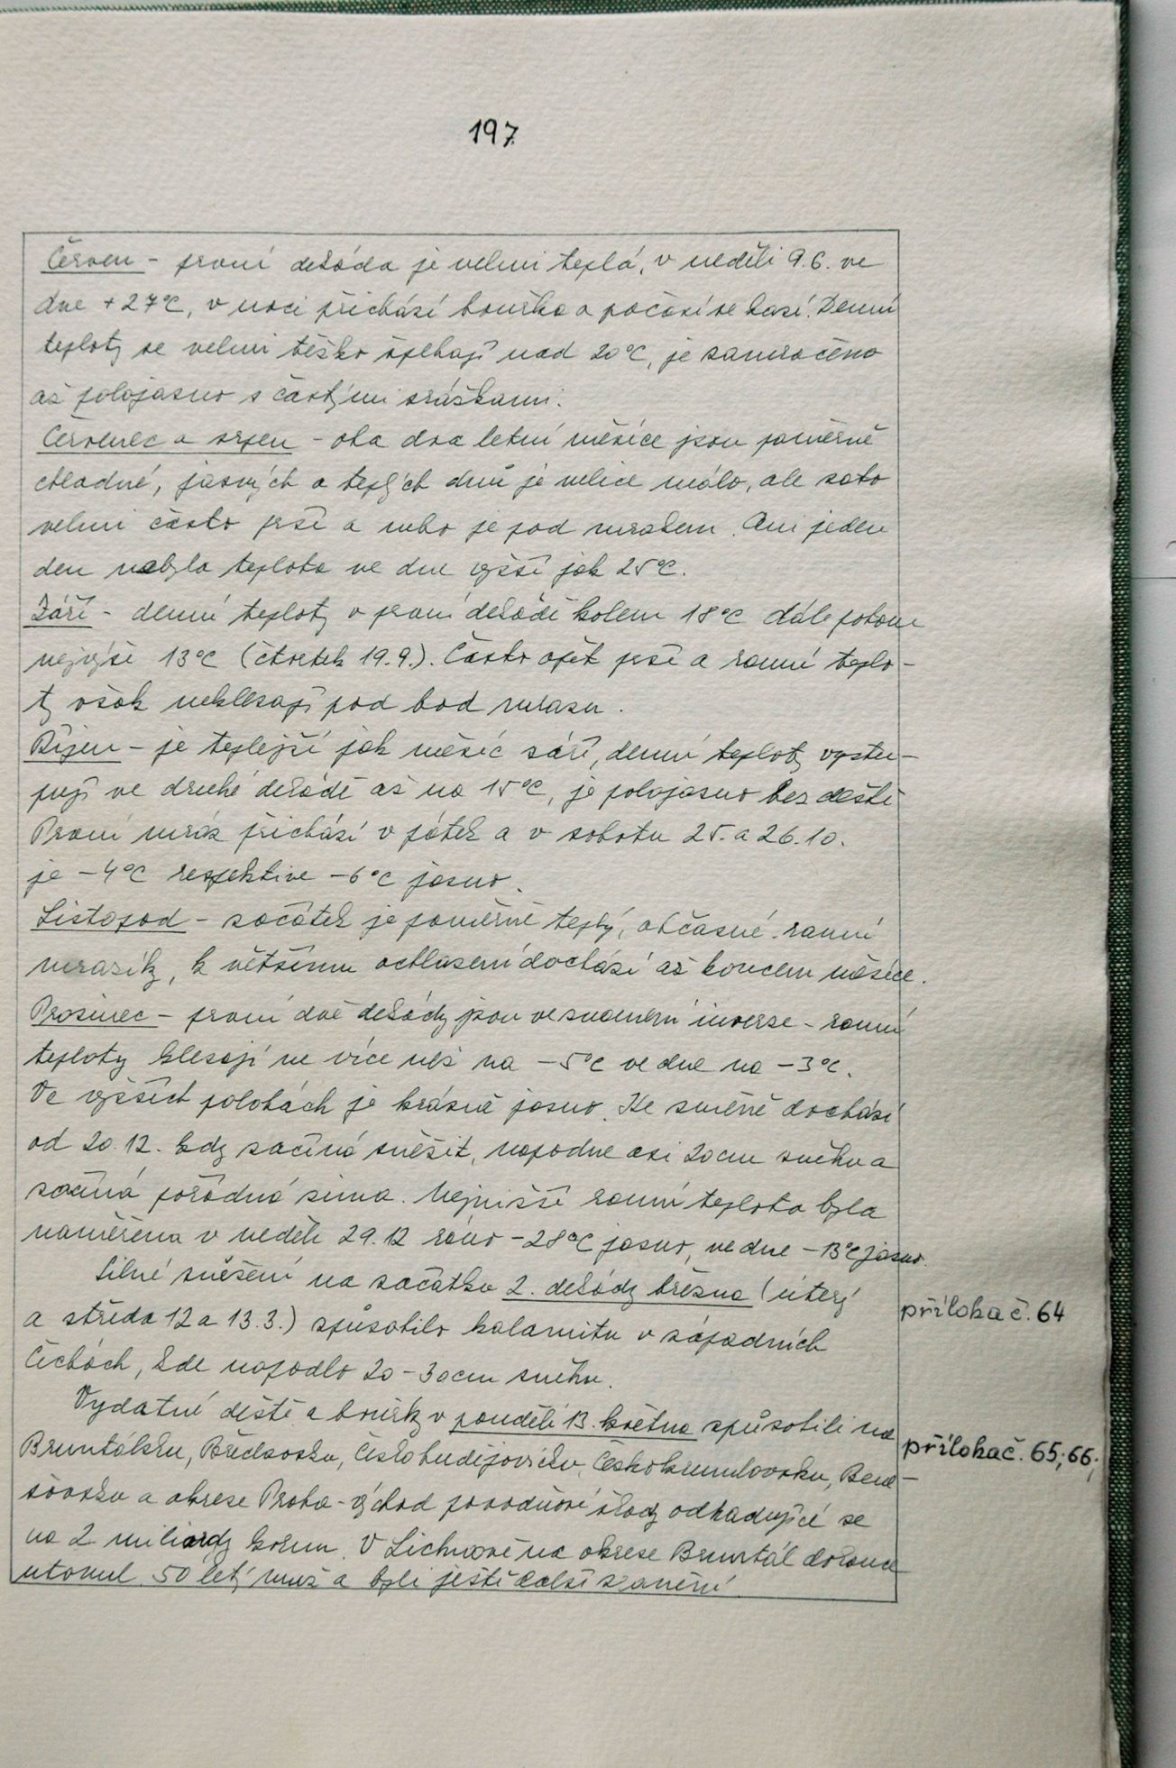 197
Červen - první dekáda je velmi teplá, v neděli 9.6. ve
dne +27°C, v noci přichází bouřka a počasí se kazí. Denní
teploty se velmi těžko šplhají nad 20°C, je zamračeno
až polojasno s častými srážkami.
Červenec a srpen - oba dva letní měsíce jsou poměrně
chladné, jasných a teplých dnů je velice málo, ale zato
velmi často prší a nebo je pod mrakem. Ani jeden
den nebyla teplota ve dne vyšší jak 25°C.
Září - denní teploty v první dekádě kolem 18°C dále potom
nejvýše 13°C (čtvrtek 19.9.). Často opět prší a ranní teplo-
ty však neklesají pod bod mrazu.
Říjen - je teplejší jak měsíc září, denní teploty vystu-
pují ve druhé dekádě až na 15°C, je polojasno bez deště
První mráz přichází v pátek a v sobotu 25. a 26.10.
je -4°C respektive -6°C jasno.
Listopad - začátek je poměrně teplý, občasné ranní
mrazíky, k většímu ochlazení dochází až koncem měsíce.
Prosinec - první dvě dekády jsou ve znamení inverze - ranní
teploty klesají ne více než na -5°C ve dne na -3°C.
Ve vyšších polohách je krásně jasno. Ke změně dochází
od 20.12. kdy začíná sněžit, napadne asi 20cm sněhu a
začíná pořádná zima. Nejnižší ranní teplota byla
naměřena v neděli 29.12 ráno -28°C jasno, ve dne -13°C jasno.
Silné sněžení na začátku 2. dekády března (úterý
příloha č. 64
a středa 12 a 13.3.) způsobilo kalamitu v západních
Čechách, kde napadlo 20-30cm sněhu.
Vydatné deště a bouřky v pondělí 13. května způsobili na
příloha č. 65; 66;
Bruntálsku, Břeclavsku, Českobudějovicku, Českokrumlovsku, Bene-
šovsku a okrese Praha-východ povodňové škody odhadující se
na 2 miliardy korun. V Lichnově na okrese Bruntál dokonce
utonul 50 letý muž a byli ještě další zranění.